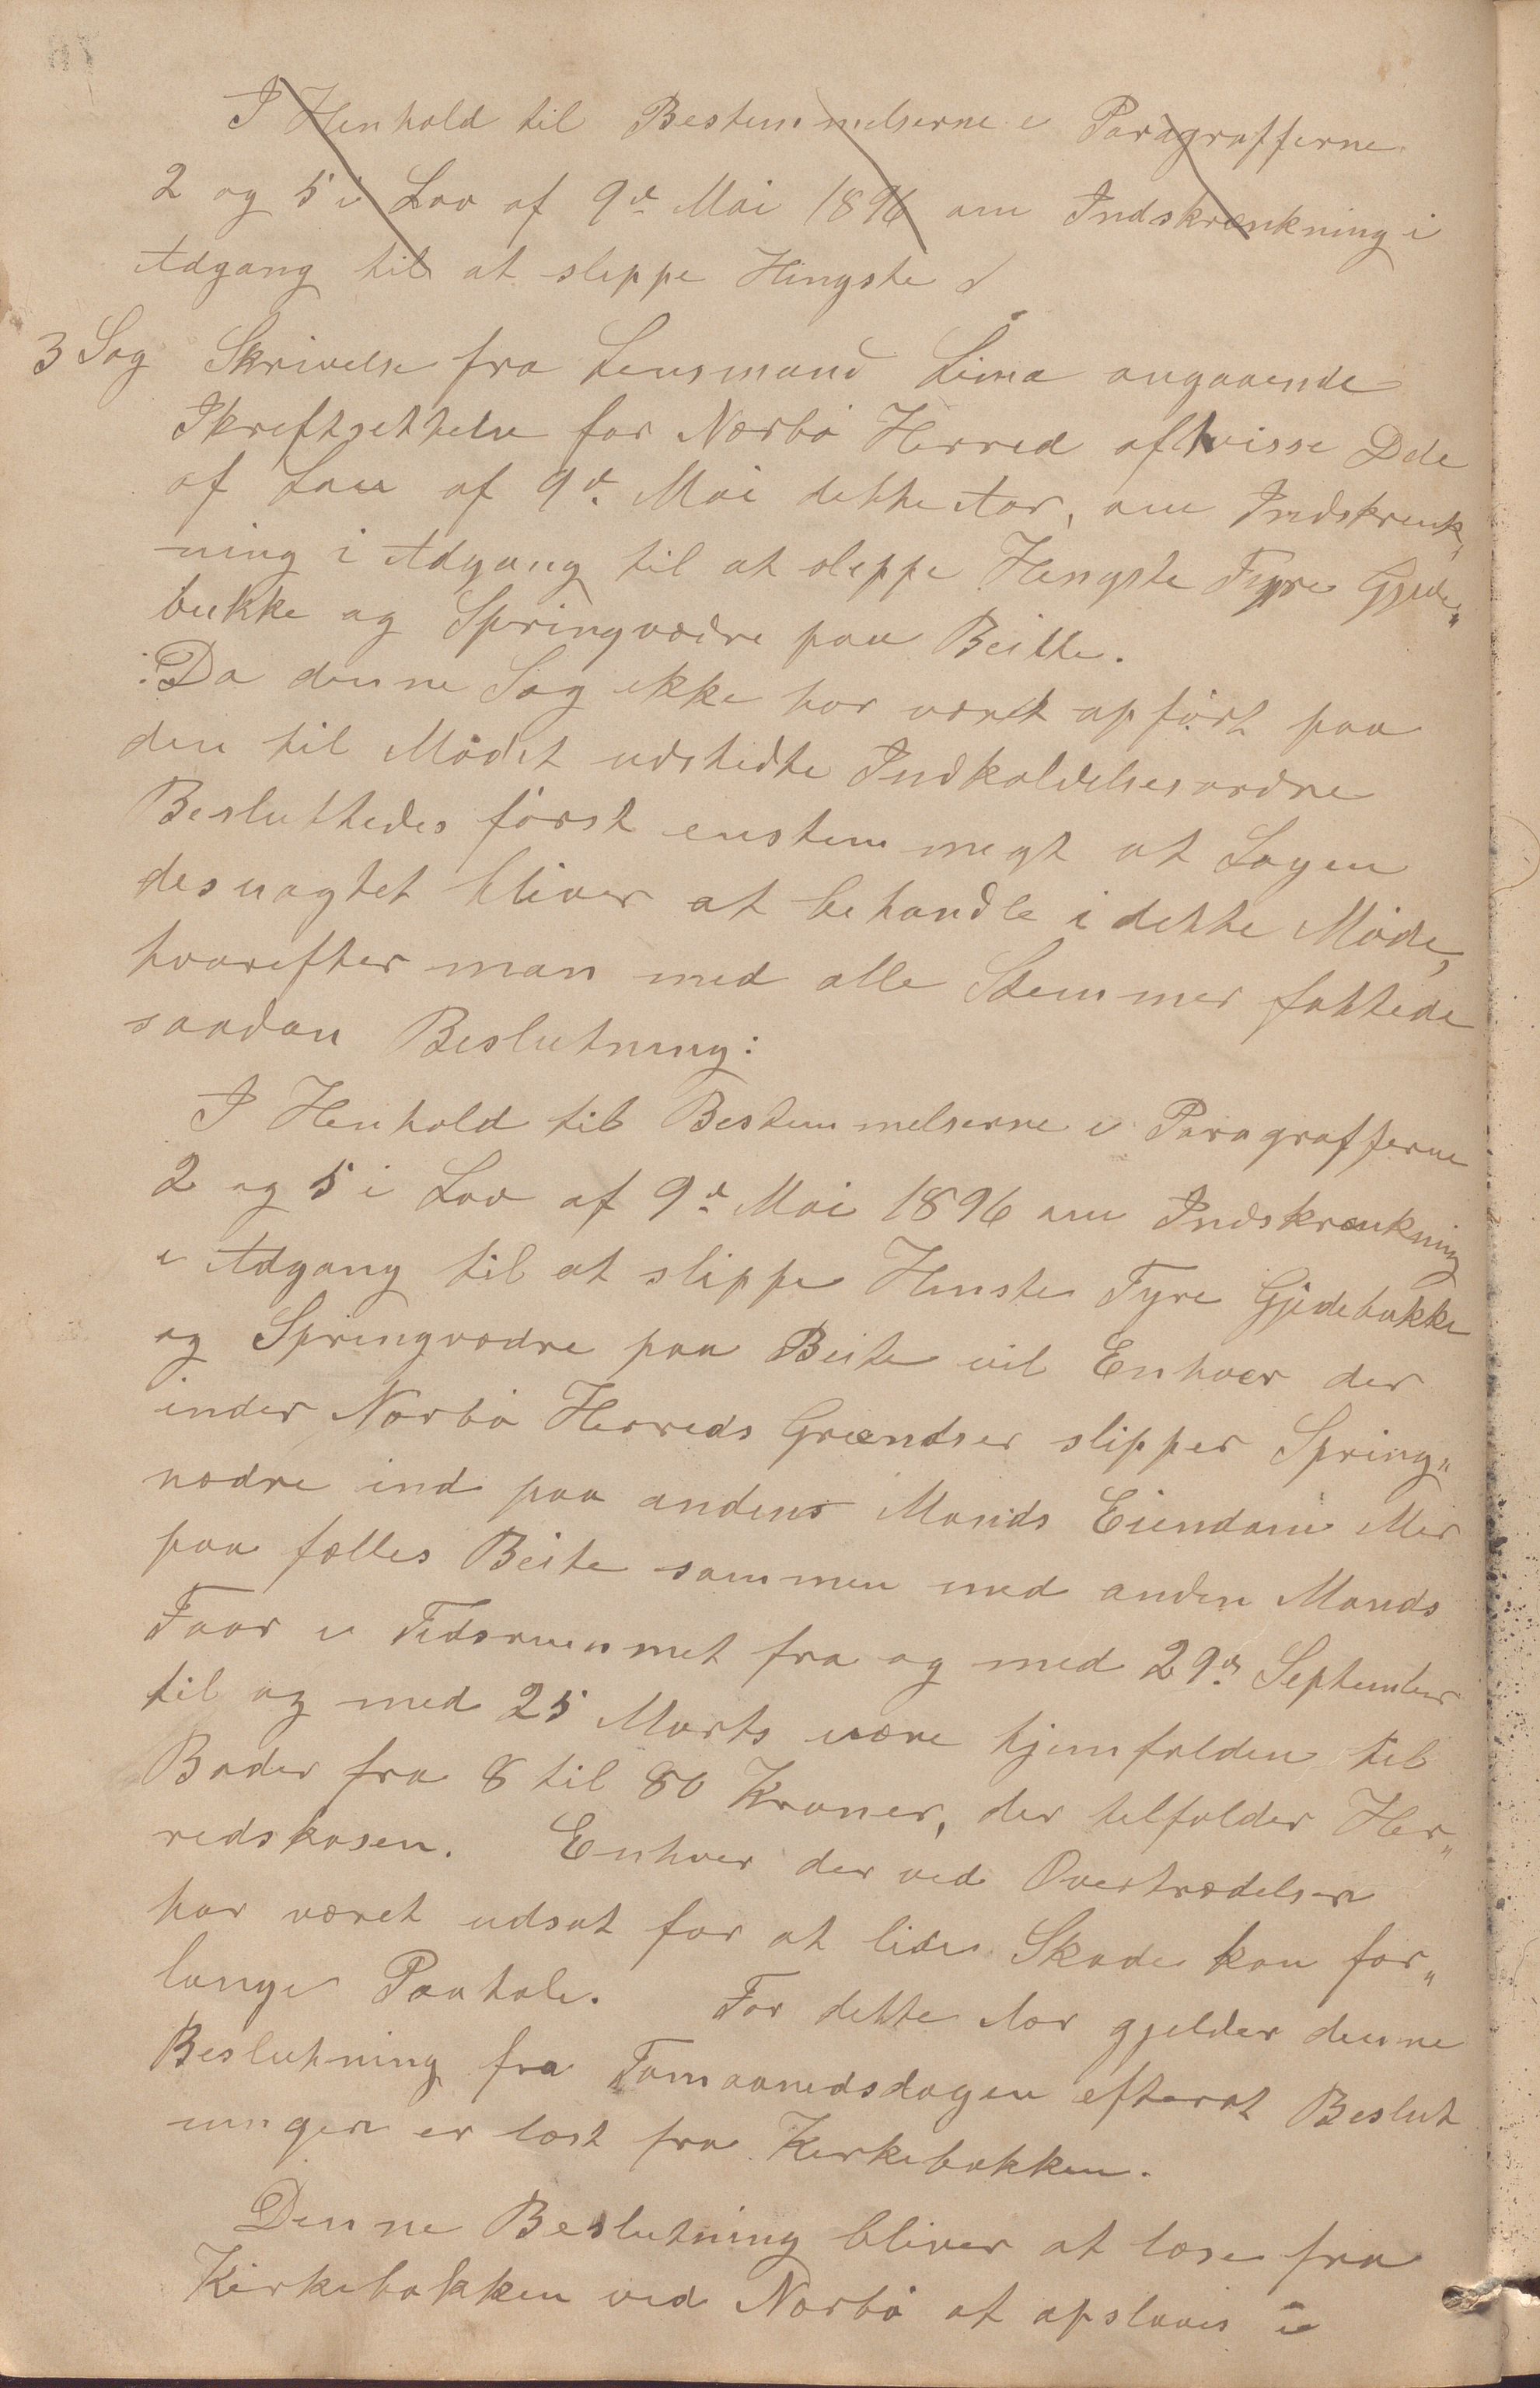 I Henhold til Bestemmelserne i Paragrafferne
2 og 5 i Lov af 9de Mai 1896 om Indskrænkning i
Adgang til at slippe Hingste
3 Sag Skrivelse fra Lensmand Lima angaaende
Ikraftsettelse for Nærbø Herred af visse Dele
af Lov af 9de Mai dette Aar, om Indskrenk„
ning i Adgang til at slippe Hengste Tyre Gjede„
bukke og Springvædre paa Beitte.
:Da denne Sag ikke har været opført paa
den til Mødet udstedte Indkaldelsesordre
Besluttedes først enstemmigt at Sagen
desuagtet bliver at behandle i dette Møde,
hvorefter man med alle Stemmer fattede
saadan Beslutning:
I Henhold til Bestemmelserne i Paragrafferne
2 og 5 i Lov af 9de Mai 1896 om Indskrænkning
i Adgang til at slippe Henste Tyre Gjedebukke
og Springvædre paa Beite vil Enhver der
inder Nærbø Herreds Grændser slipper Spring„
vædre ind paa andens Mands Eiendom eller
paa fælles Beite sammen med anden Mands
Faar i Tidsrummet fra og med 29de September
til og med 25 Marts være hjemfalden til
Bøder fra 8 til 80 Kroner, der tilfalder Her„
redskasen. Enhver der ved Overtrædelsen
har været udsat for at lide Skade kan for„
lange Paatale. For dette Aar gjelder denne
Beslutning fra Tomaanedsdagen efterat Beslut
ningen er læst fra Kirkebakken.
Denne Beslutning bliver at læse fra
Kirkebakken ved Nærbø at opslaaes i